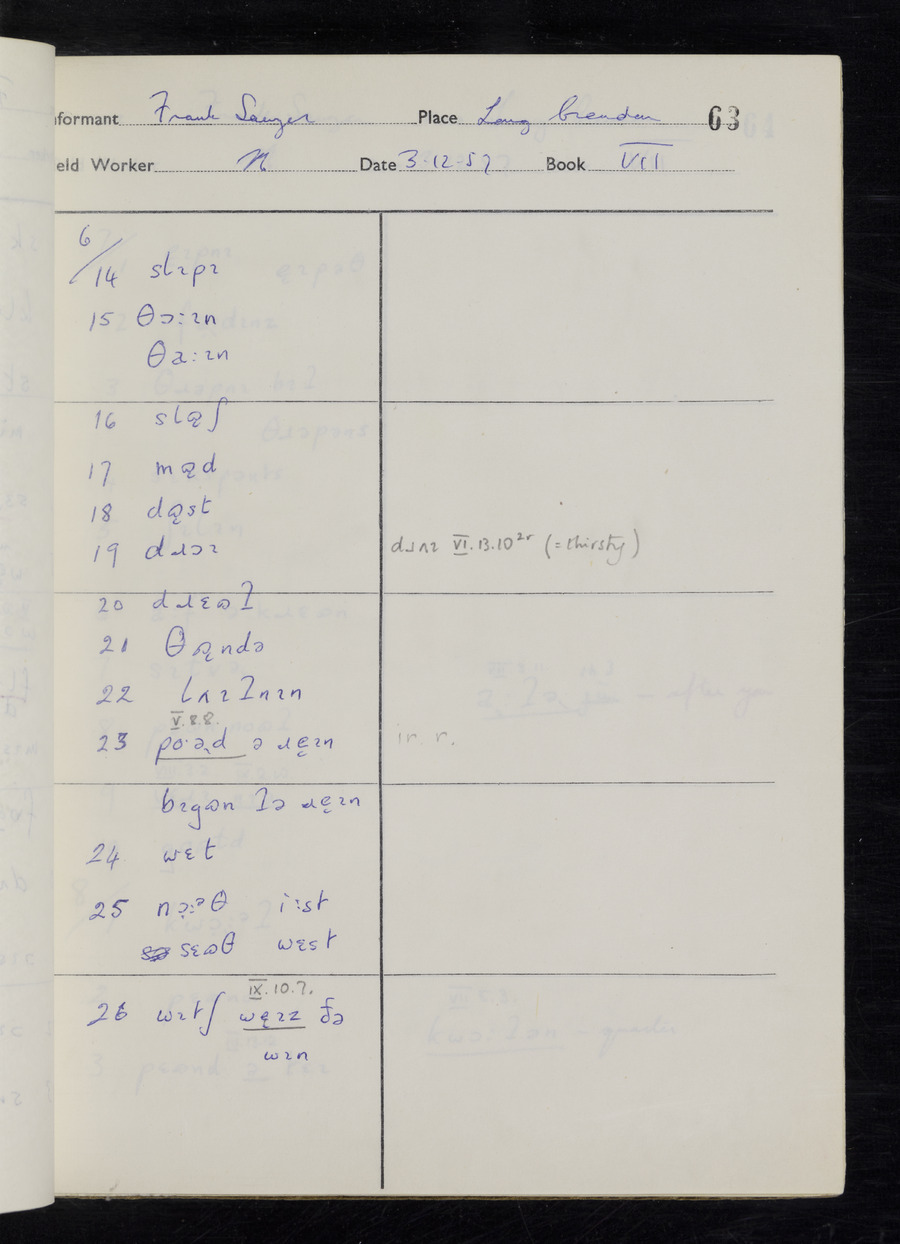 Informant Frank Sawyer Place Long Crendon 63
Field Worker N Date 3.12.57 Book VII
6/14 slɪpɪ
15 θɔːɪn
θəːɪn
16 slæʃ
17 mæd
18 dʌst
19 dɹɔɪ dɹʌɪ VI.13.10²ʳ (=thirsty)
20 dɹɛɷʔ
21 θʌndə
22 lʌɪʔnɪn
V.8.8.
23 poəd ə ɹɛɪn ir. r.
bɪgɷn ʔə ɹɛɪn
24 wɛt
25 nɔːᵊθ iːst
sɛɷθ wɛst
IX.10.7.
26 wɪtʃ wɛɪz ðə
wɪn